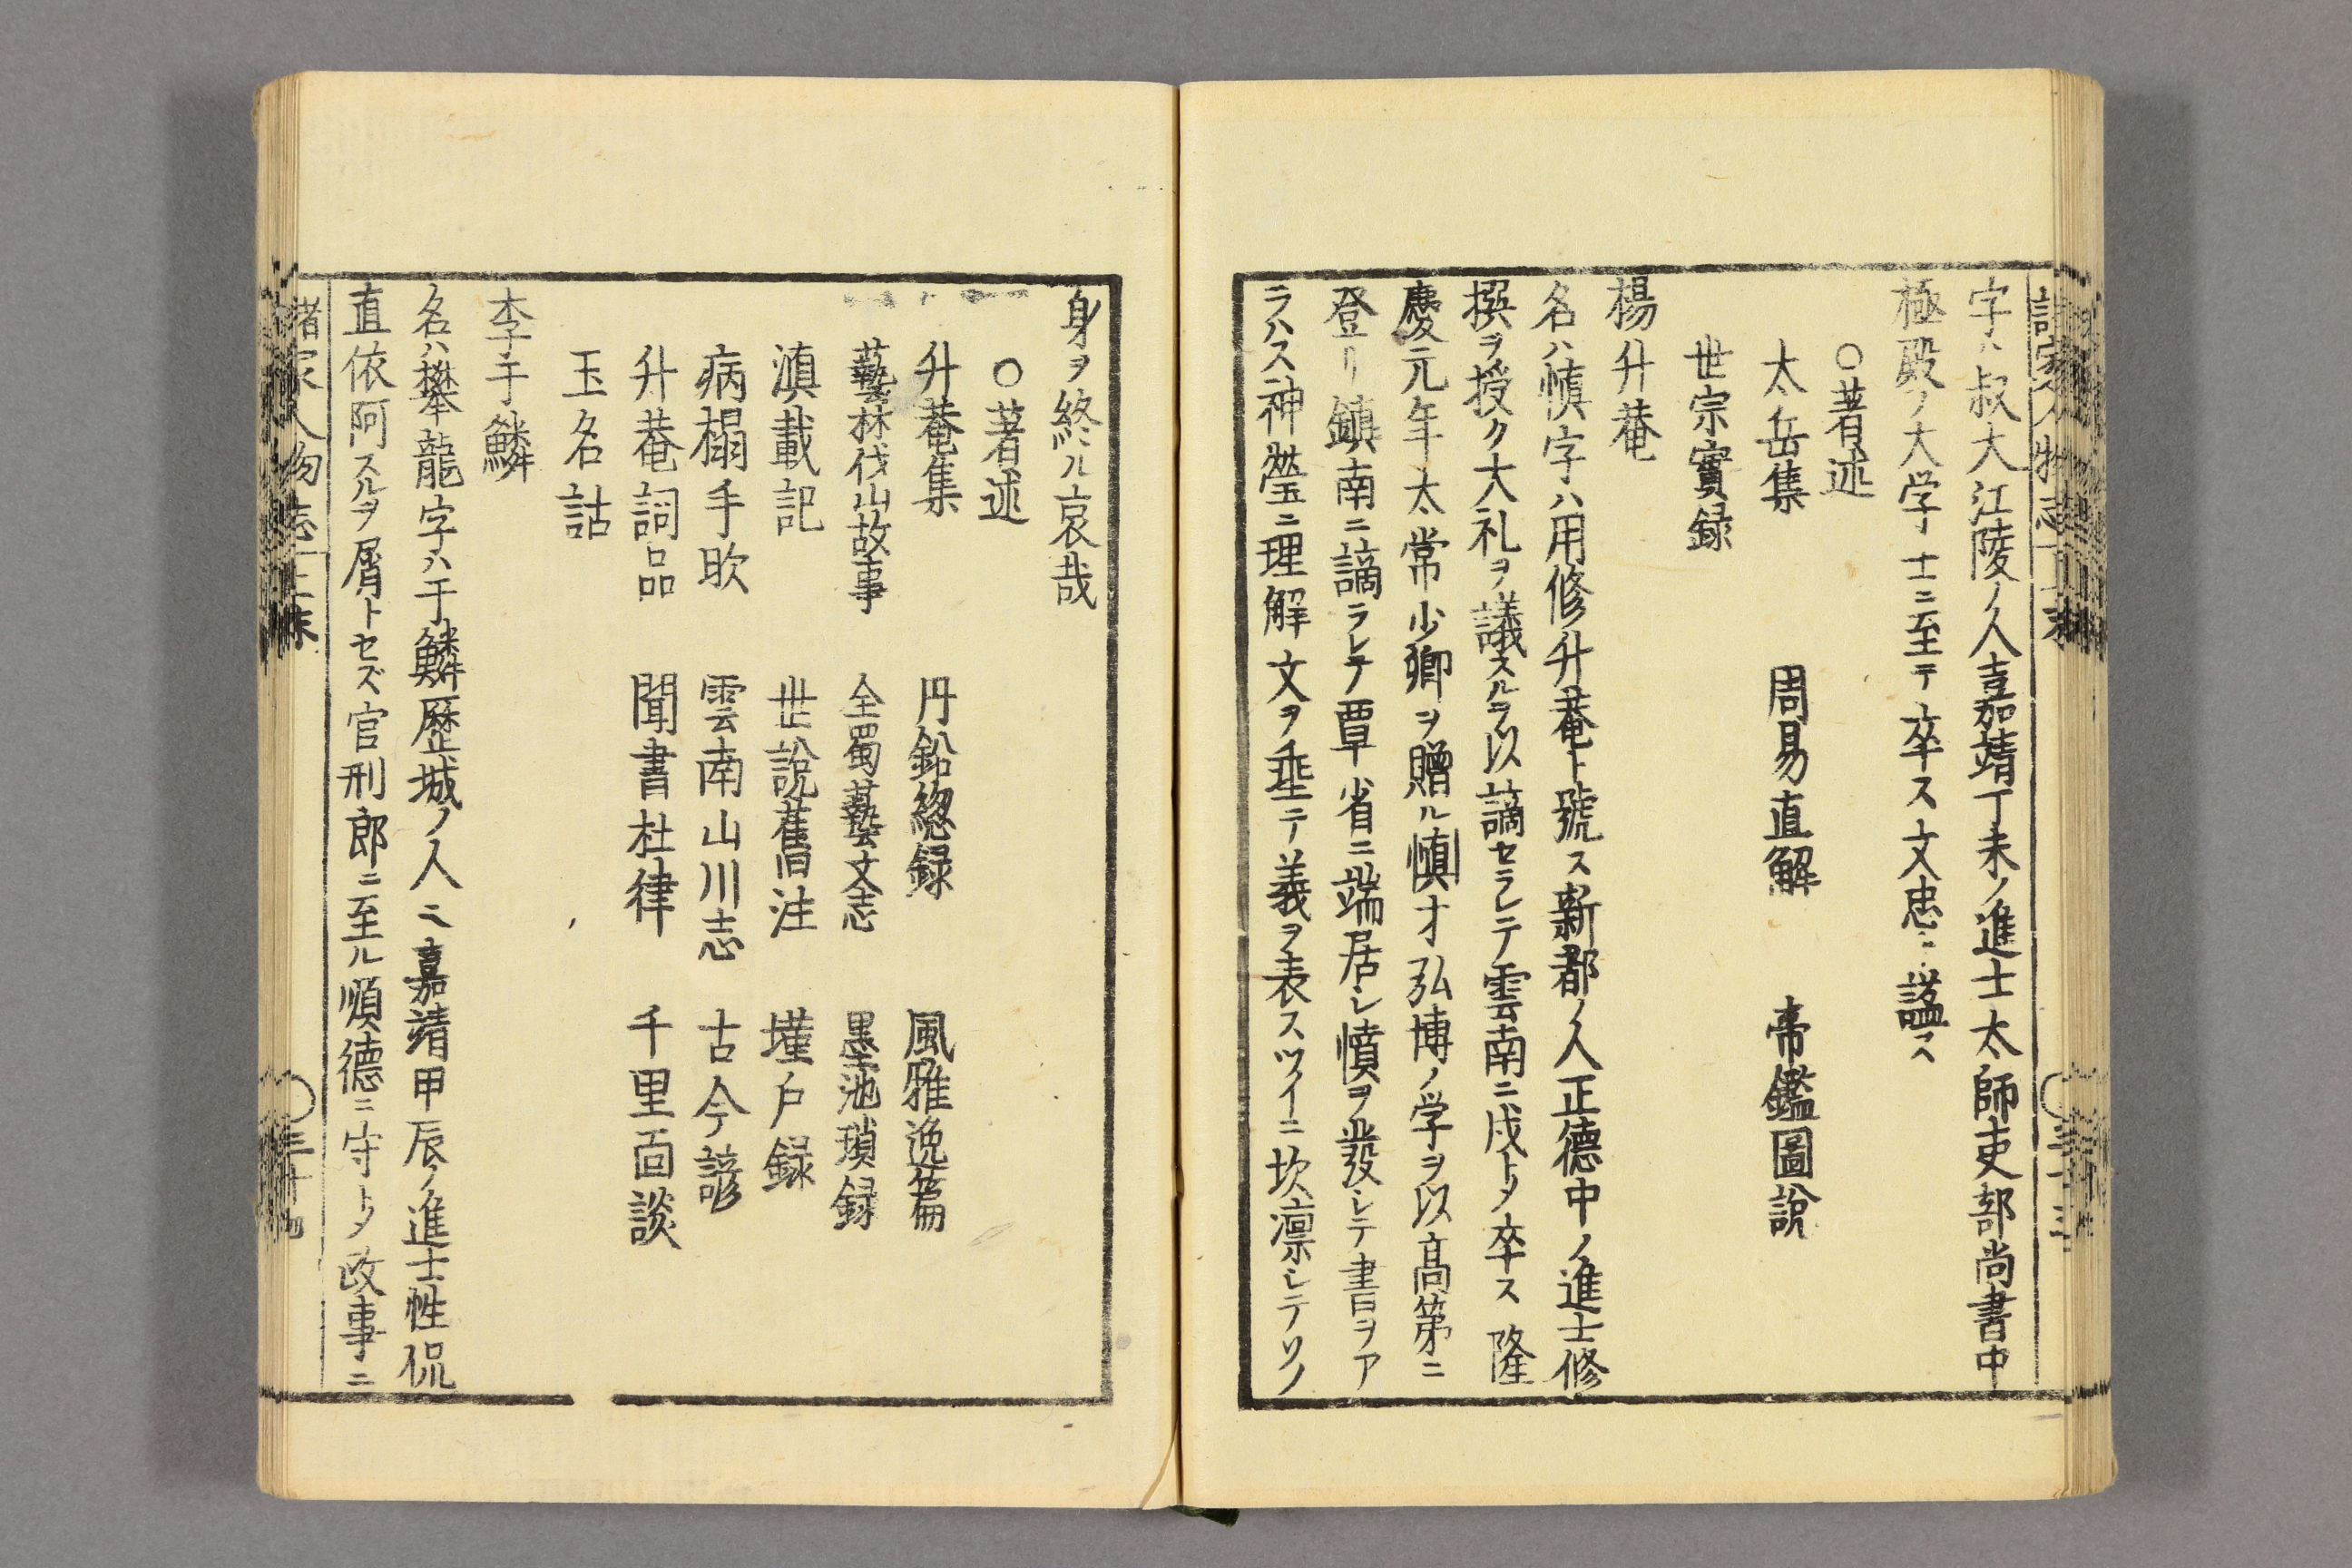 字ハ叔大江陵ノ人嘉靖丁未ノ進士太師吏部尚書中
極殿ノ大学士ニ至テ卒ス文忠ニ謚ス
○著述
太岳集 周易直解 帝鑑圖說
世宗實録
楊升菴
名ハ慎字ハ用修升菴ト號ス新都ノ人正德中ノ進士修
撰ヲ授ク大礼ヲ議スルヲ以謫セラレテ雲南ニ戍トメ卒ス隆
慶元年太常少卿ヲ贈ル慎才弘博ノ学ヲ以高第ニ
登リ鎮南ニ謫ラレテ覃省ニ端居シ憤ヲ發レテ書ヲア
ラハス神瑩ニ理解文ヲ垂テ義ヲ表スツイニ坎凛レテソノ
身ヲ終ル哀哉
○著述
升菴集 円鉛緫録 風雅逸篇
藝林伐山故事 全蜀藝文志 墨池瑣録
滇載記 世說舊注 墐戸録
病榻手欥 雲南山川志 古今諺
升菴詞品 聞書杜律 千里面談
玉名詁
李于鱗
名ハ攀龍字ハ于鱗歴城ノ人ニ嘉靖甲辰ノ進士性侃
直依阿スルヲ屑トセズ官刑郎ニ至ル順德ニ守トメ政事ニ
諸家人物志